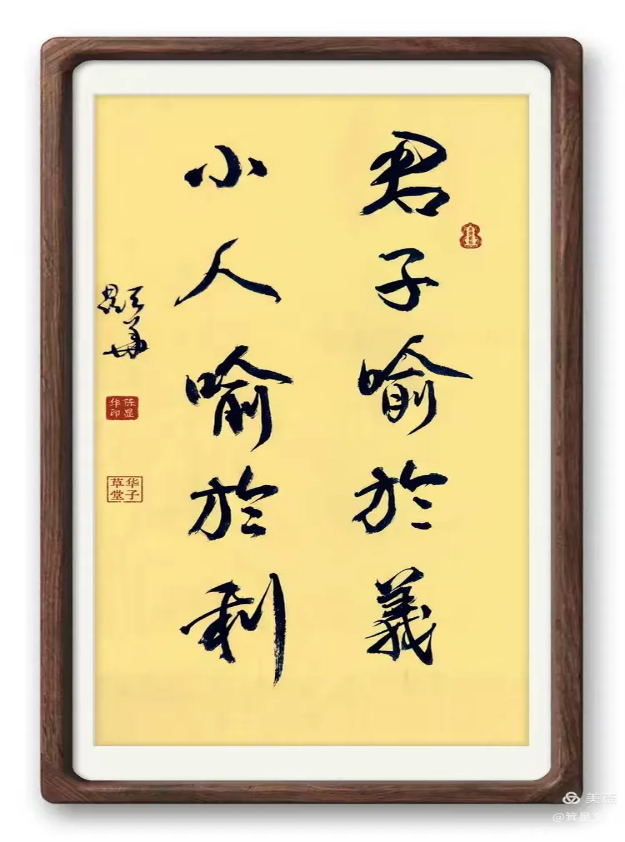 君子喻於義
小人喻於利
顯華
陈显华印
华子草堂
美篇